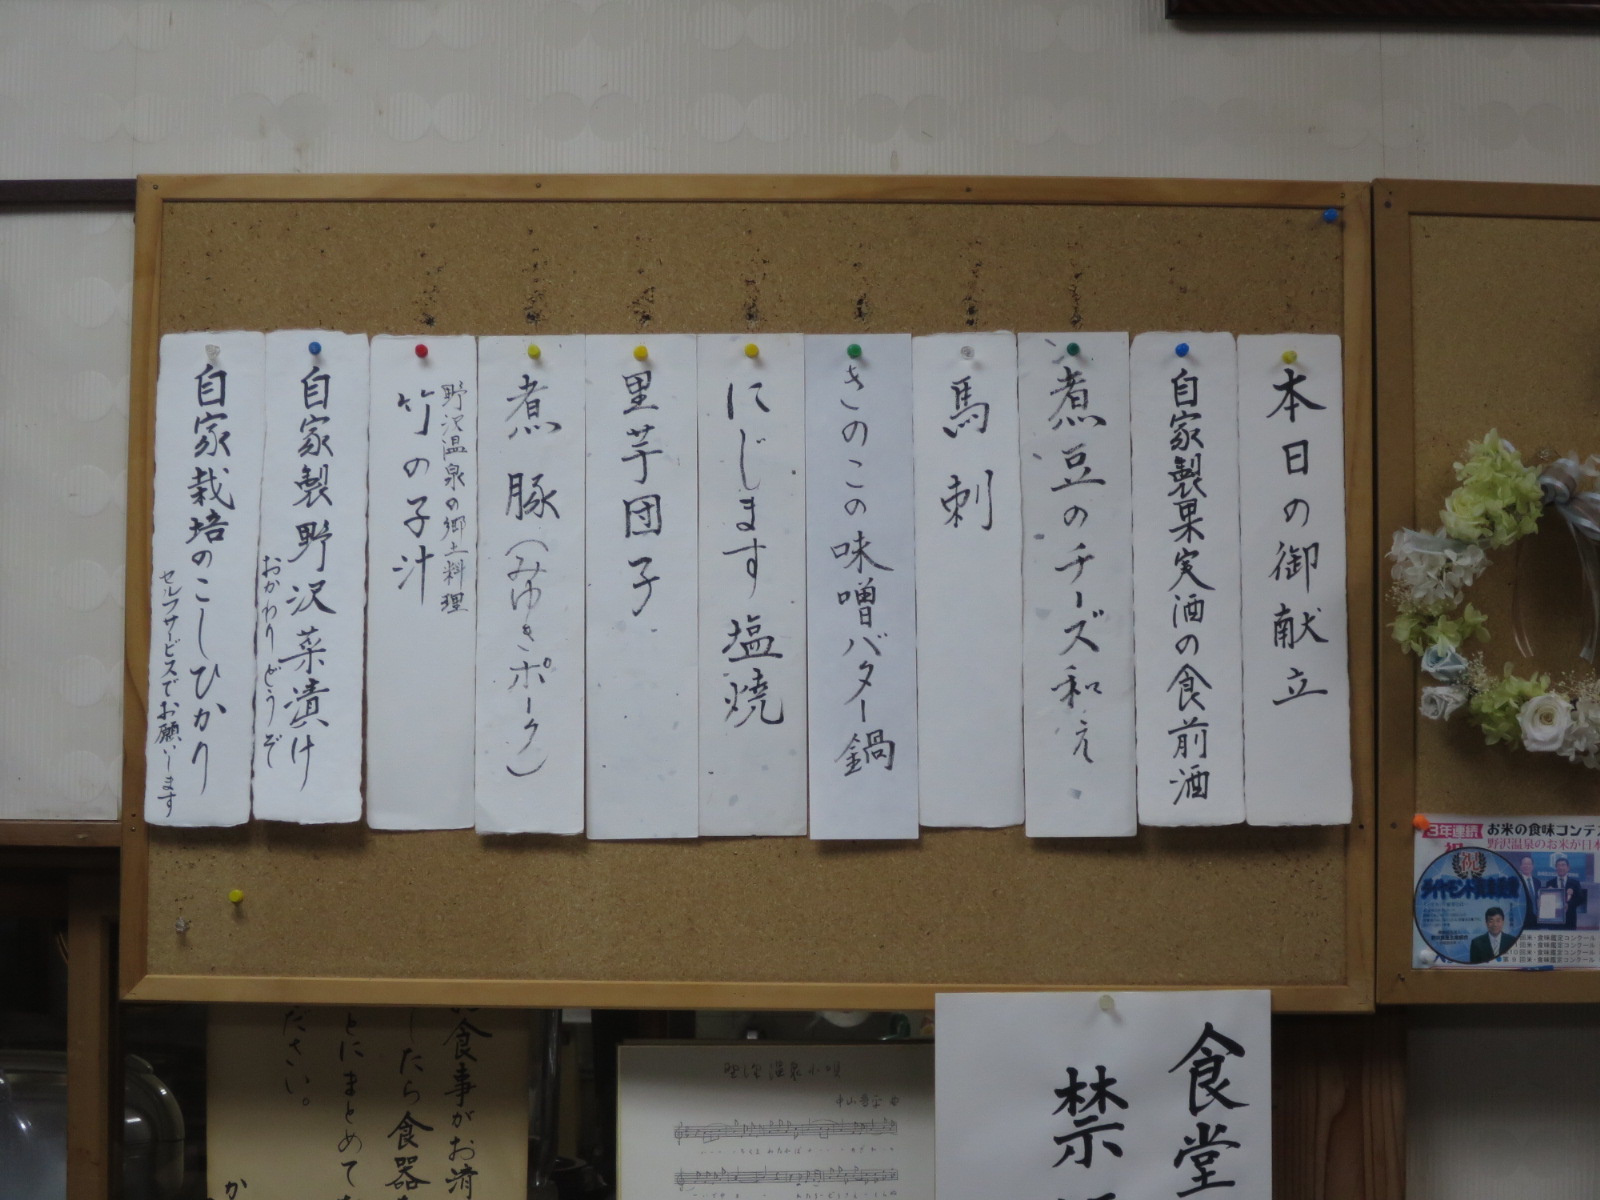 本日の御献立
自家製果実酒の食前酒
煮豆のチーズ和え
馬刺
きのこの味噌バター鍋
にじます塩焼
里芋団子
煮豚（みゆきポーク）
野沢温泉の郷土料理
竹の子汁
自家製野沢菜漬け
おかわりどうぞ
自家栽培のこしひかり
セルフサービスでお願いします
3年連続
お米の食味コンテ
野沢温泉のお米が日本
祝
食堂
禁
食事がお済
したら食器
とにまとめて
ださい。
か
野沢温泉小唄
中山晋平 曲